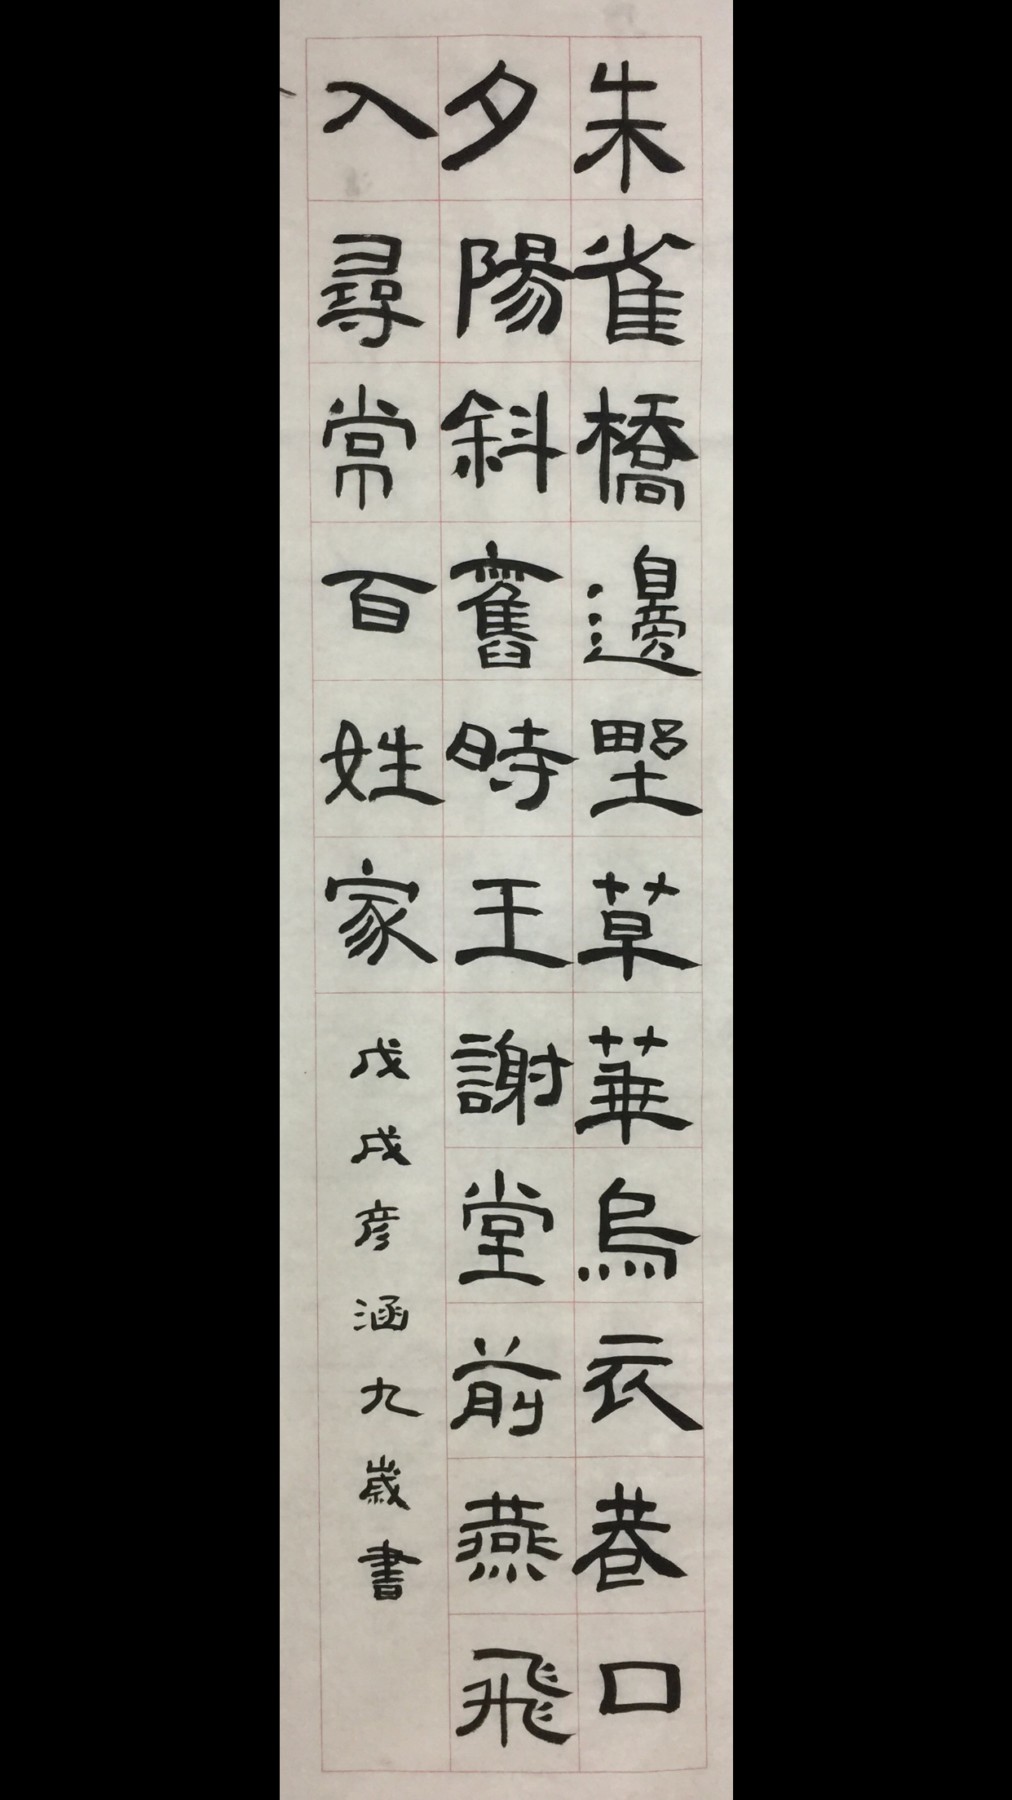 朱雀橋邊野草華烏衣巷口
夕陽斜舊時王謝堂前燕飛
入尋常百姓家
戊戌彦涵九歲書